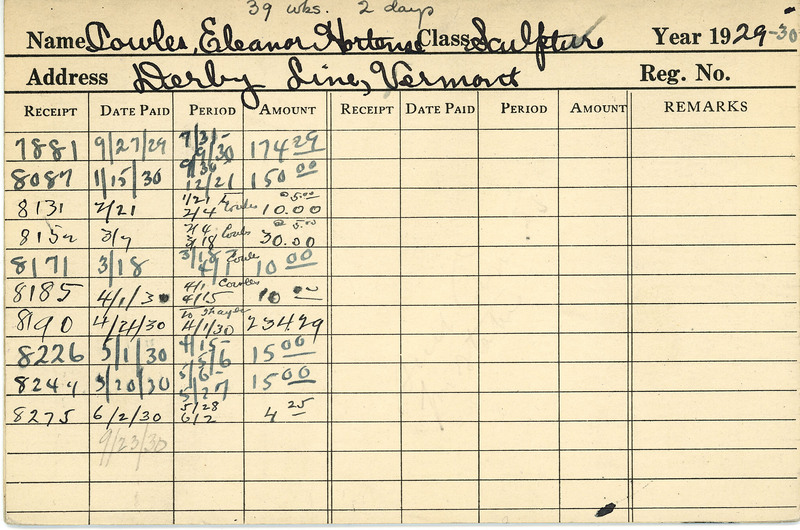 39 wks. 2 days
Name Cowles, Eleanor Hortense Class Sculpture Year 1929-30
Address Derby Line, Vermont Reg. No.
RECEIPT DATE PAID PERIOD AMOUNT RECEIPT DATE PAID PERIOD AMOUNT REMARKS
7881 9/27/29 9/30 174 29
8087 1/15/30 9/30 12/21 150 00
8131 2/21 1/21 2/4 Cowles @ 5.00 10.00
815 3/7 2/4 3/18 Cowles @ 5.00 30.00
8171 3/18 3/18 4/1 Cowles 10 00
8185 4/1/30 4/1 4/15 Cowles 10 00
8190 4/24/30 to 4/1/30 234 29
8226 5/1/30 4/15- 5/6 15 00
824 5/20/30 5/6- 5/27 15 00
8275 6/2/30 5/28 6/2 4 25
9/23/30